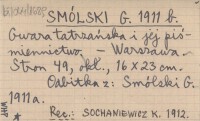 SMÓLSKI G. 1911 b.
Gwara tatrzańska i jej piś-
miennictwo. – Warszawa –
Stron 49, okl., 16 x 23 cm.
Odbitka z: Smólski G.
1911a.
Rec.: SOCHANIEWICZ K. 1912.